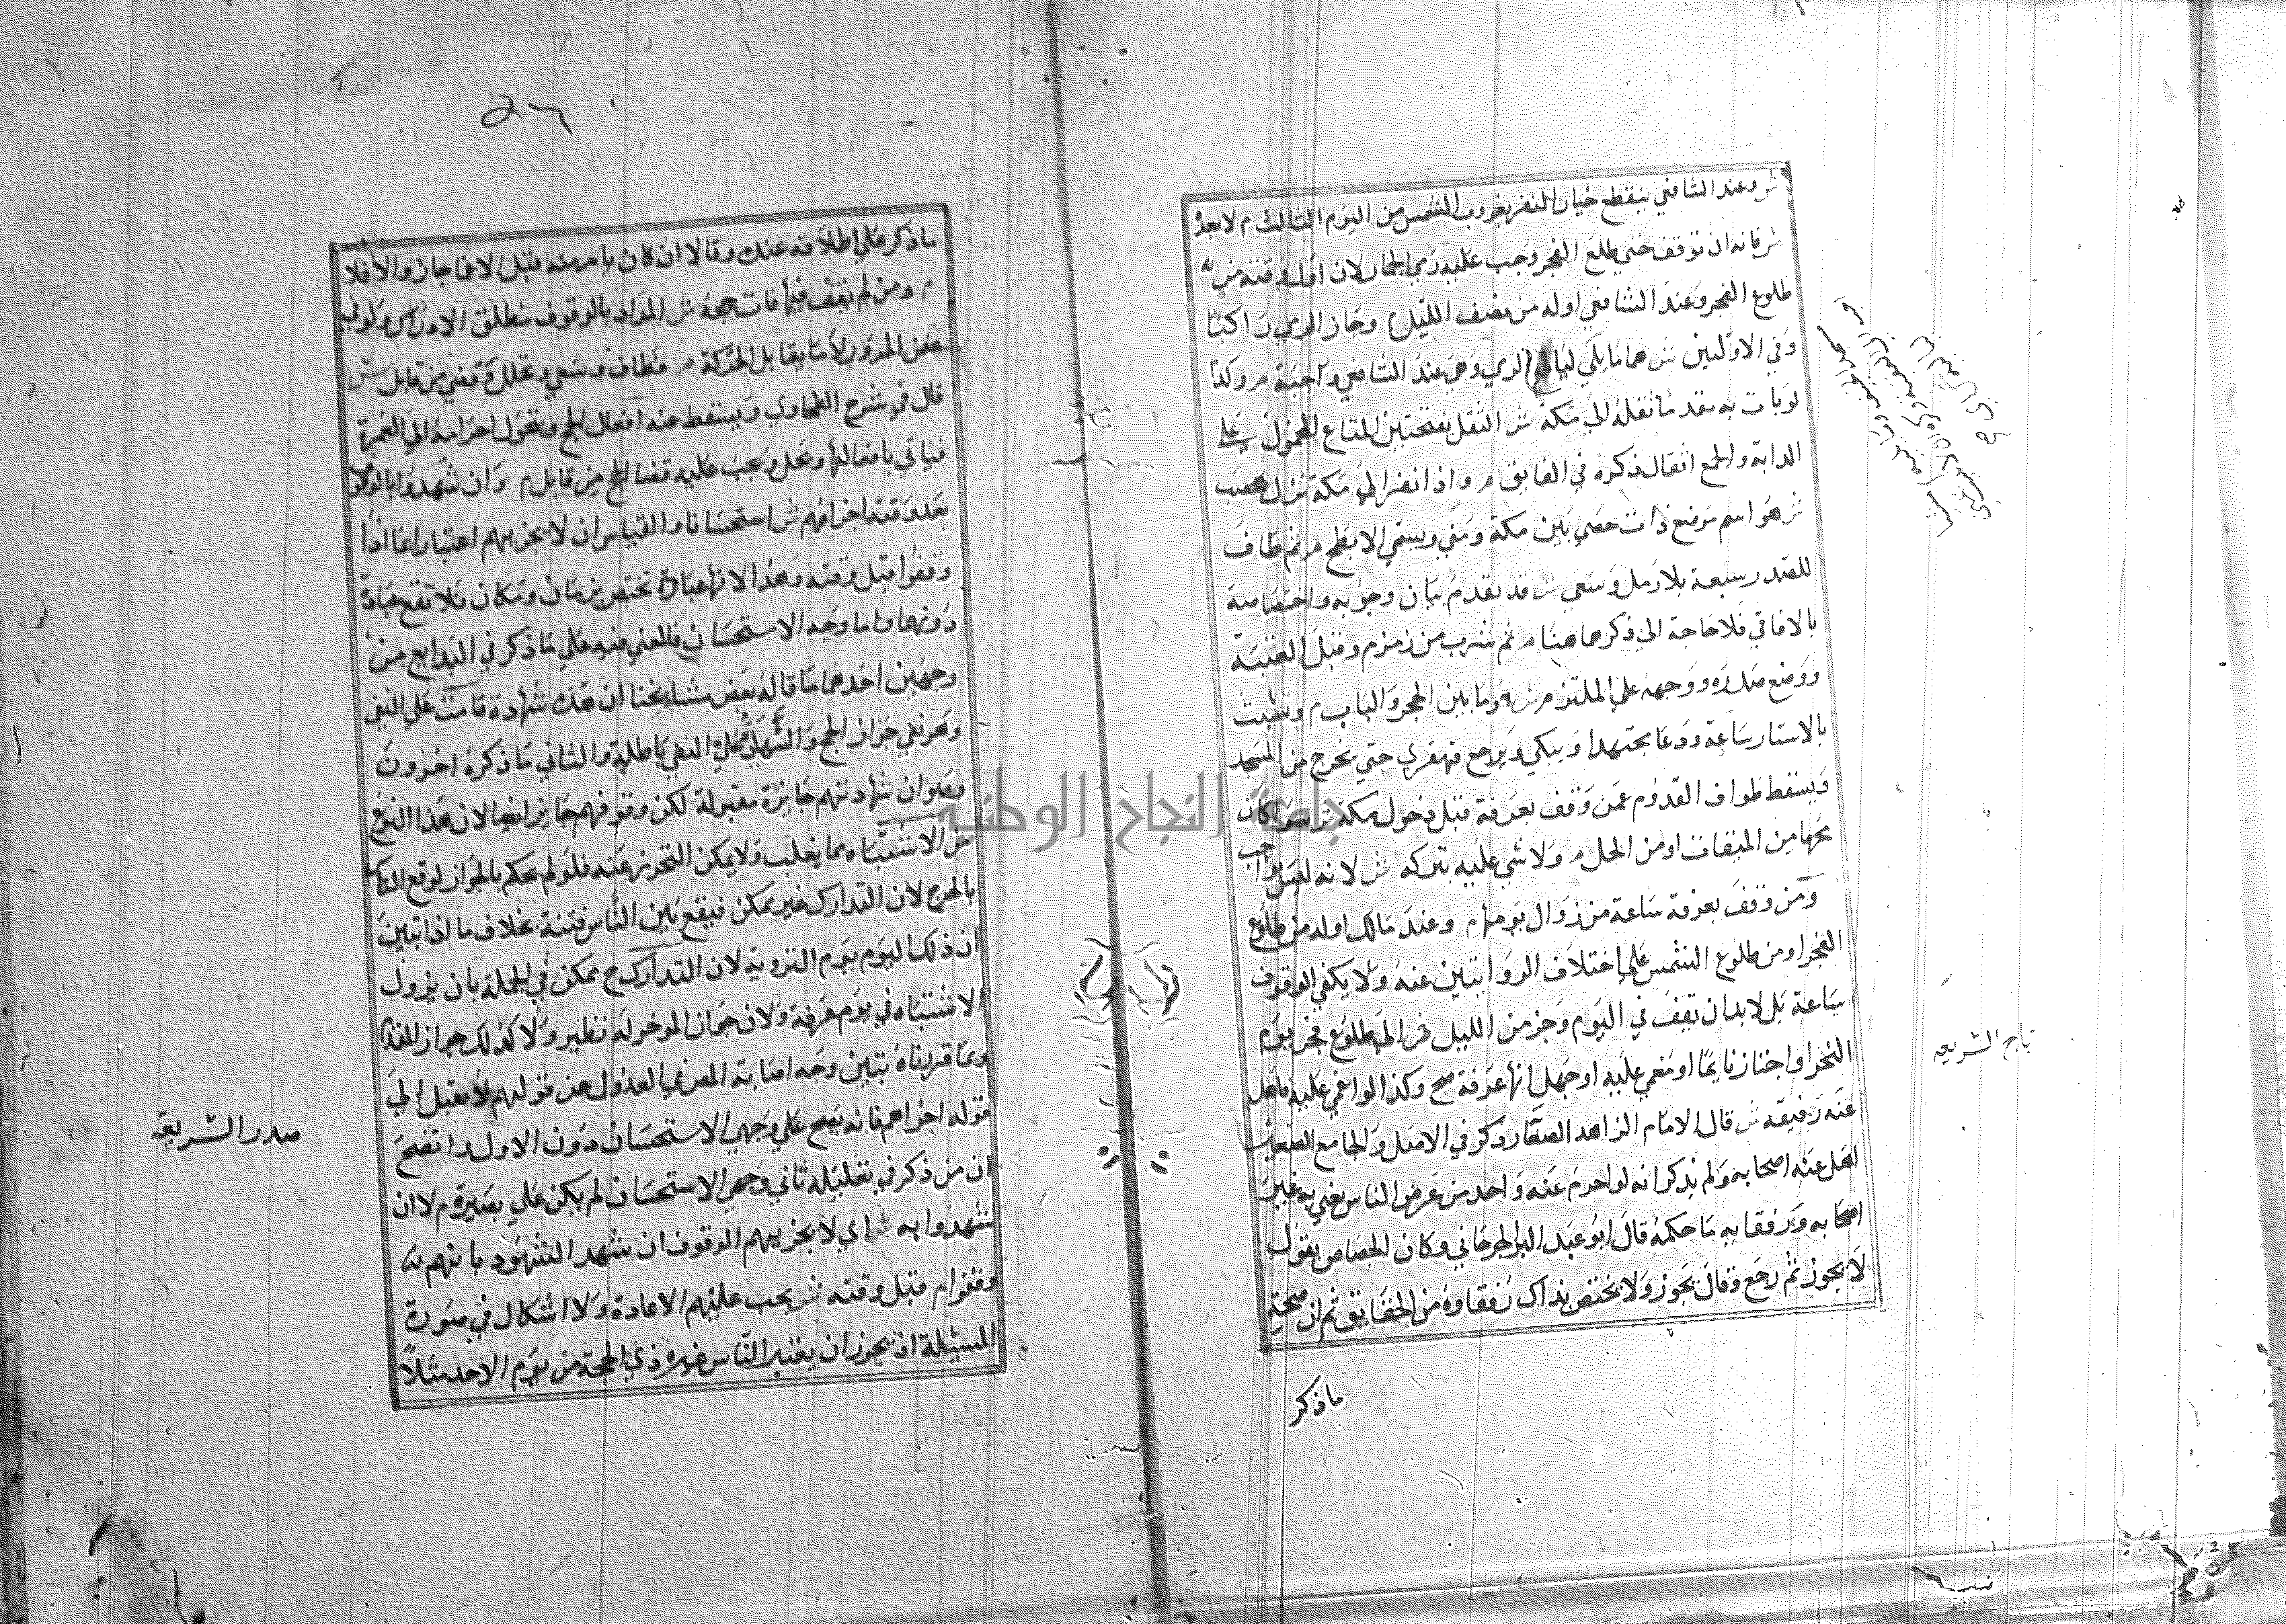 ش وعند الشافعي ينقطع خيار النفر بغروب الشمس من اليوم الثالث م لا بعده
ش فانه ان توقف حتي طلع الفجر وجب عليه رمي الجمار لان اول وقته من
طلوع الفجر وعند الشافعي اوله من نصف الليل م وجاز الرمي راكبا
وفي الاوليين ش هما ما يلي الرمي وهي عند الشافعي واجبة م وكذا
لو بات به بعد ما نقله الي مكة ش الثقل بفتحتين المتاع المحمول علي
الدابة والجمع اثقال ذكره في الفايق م واذا نفر الي مكة نزل بمحصب
ش هو اسم موضع ذات حصي بين مكة ومني ويسمي الابطح م ثم طاف
للصدر سبعة بلا رمل وسعي ش قد تقدم بيان وجوبه واختصاصه
بالافاقي فلا حاجة الي ذكرها هنا م ثم شرب من زمزم وقبل العتبة
ووضع صدره ووجهه علي الملتزم ش هو ما بين الحجر والباب م وتشبث
بالاستار ساعة ودعا مجتهدا ويبكي ويرجع قهقري حتي يخرج من المسجد
ويسقط طواف القدوم عمن وقف بعرفة قبل دخول مكة ش سوا كان
من الميقات او من الحل م ولا شي عليه بتركه ش لانه ليس بواجب
ومن وقف بعرفة ساعة من زوال يومها م وعند مالك اوله من طلوع
الفجر او من طلوع الشمس علي اختلاف الروايتين عنه ولا يكفي الوقوف
ساعة بل لا بد ان يقف في اليوم وجز من الليل م الي طلوع فجر يوم
النحر او اجتاز نايما او مغمي عليه او جهل انها عرفة صح وكذا لو اغمي عليه فاهل
عنه رفيقه ش قال الامام الزاهد الصفار ذكر في الاصل والجامع الصغير
اهل عنه اصحابه ولم يذكر انه لو احرم عنه واحد من عرض الناس يعني به غير
اصحابه ورفقايه ما حكمه قال ابو عبد الله الجرجاني وكان الجصاص يقول
لا يجوز ثم رجع وقال يجوز ولا يختص بذاك رفقاوه من الحقايق ثم ان صحة
ما ذكر
تاج الشريعة
ما ذكر علي اطلاقه عنده وقالا ان كان بامر منه قبل الاغما جاز والا فلا
م ومن لم يقف فيها فات حجه ش المراد بالوقوف مطلق الادراك ولو في
ضمن المرور لا ما يقابل الحركة م فطاف وسعي وتحلل وقضي من قابل ش
قال في شرح الطحاوي ويسقط عنه افعال الحج وتحول احرامه الي العمرة
فياتي بافعالها وتحل ويجب عليه قضا الحج من قابل م وان شهدوا بالوقوف
بعد وقته اجزاهم ش استحسانا والقياس ان لا يجزيهم اعتبارا بما اذا
وقفوا قبل وقته وهذا لانها عبادة تختص بزمان ومكان فلا تقع عبادة
دونهما واما وجه الاستحسان فالمعني فيه علي ما ذكر في البدايع من
وجهين احدهما ما قاله بعض مشايخنا ان هذه شهادة قامت علي النفي
وهو نفي جواز الحج والشهادة علي النفي باطلة والثاني ما ذكره اخرون
وهو ان شهادتهم جايزة مقبولة لكن وقوفهم جايز ايضا لان هذا النوع
من الاشتباه مما يغلب ولا يمكن التحرز عنه فلو لم يحكم بالجواز لوقع الناس
بالحرج لان التدارك غير ممكن فيقع بين الناس فتنة بخلاف ما اذا تبين
ان ذلك اليوم يوم التروية لان التدارك ح ممكن في الجملة بان يزول
الاشتباه في يوم عرفة ولان جواز الموخر له نظير ولا كذلك جواز المقدم
وبما قررناه تبين وجه اصابة المص في العدول عن قولهم لا تقبل الي
قوله اجزاهم فانه يصح علي وجهي الاستحسان دون الاول واتضح
ان من ذكر في تعليله ثاني وجهي الاستحسان لم يكن علي بصيرة م لا ان
شهدوا به ش اي لا يجزيهم الوقوف ان شهد الشهود بانهم
وقفوا م قبل وقته ش يجب عليهم الاعادة ولا اشكال في صورة
المسئلة اذ يجوز ان يعتبر الناس غره ذي الحجة من يوم الاحد مثلا
صدر الشريعة
جامعة النجاح الوطنية